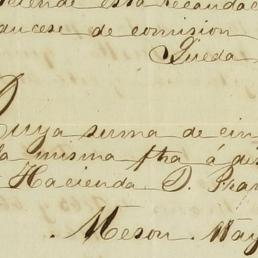 esta recauda
de comision
Queda
Cuya suma de cin
la misma fha á de
Hacienda D. Fran
Meson. May